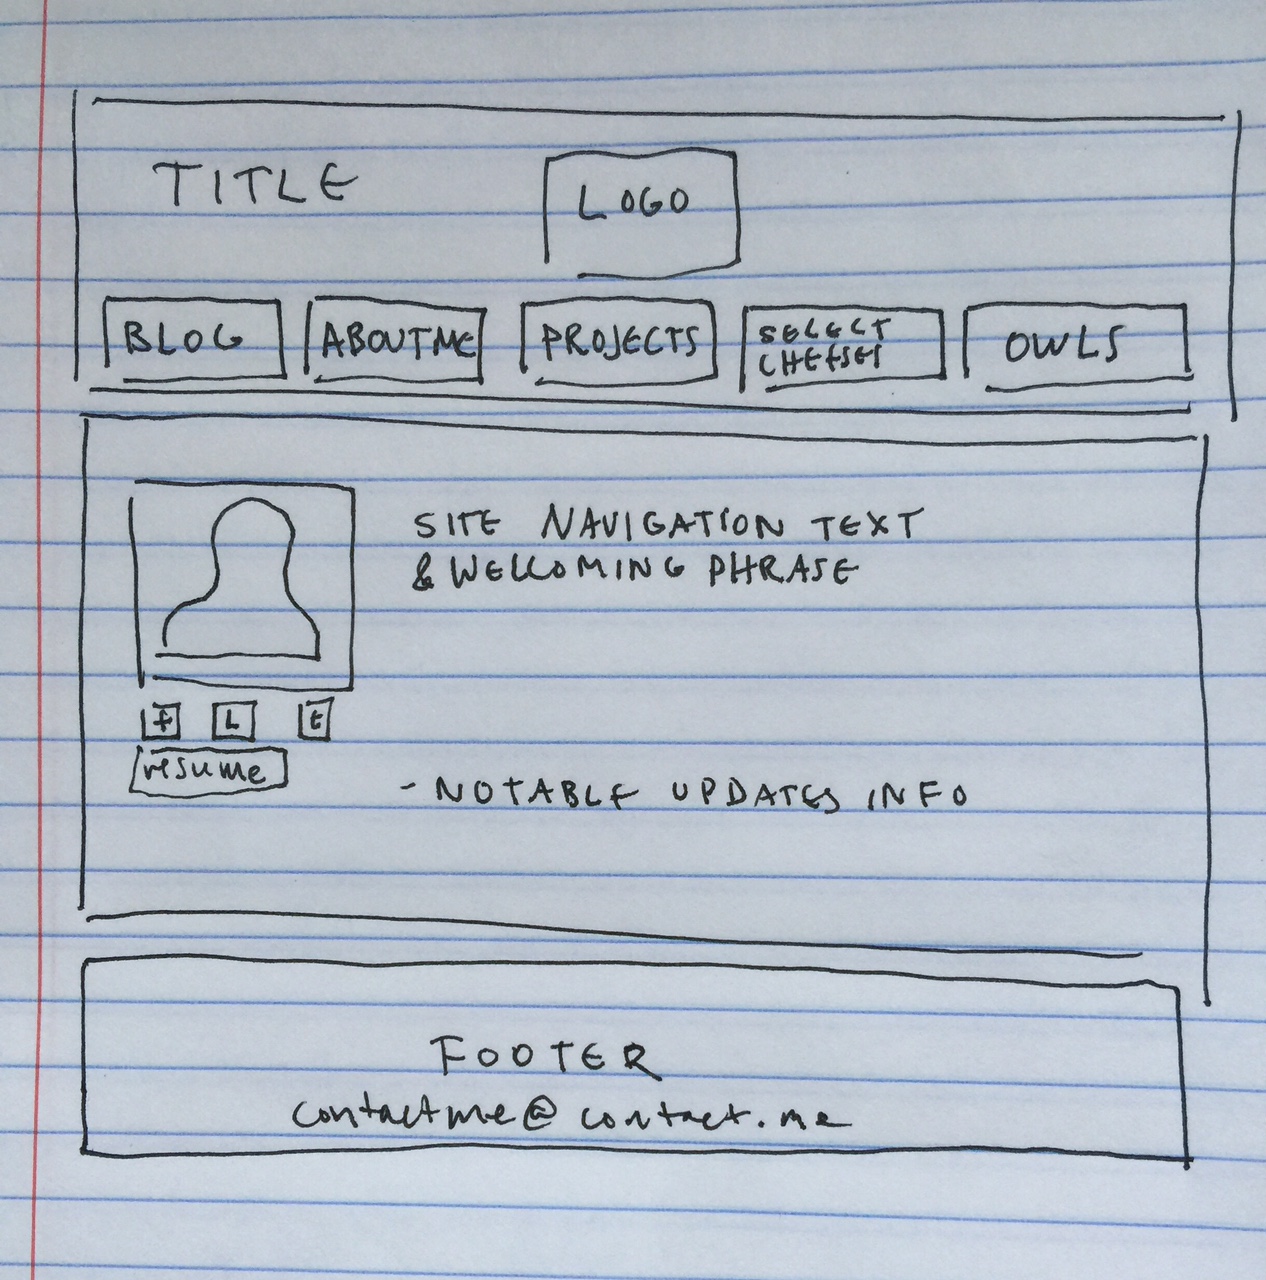 TITLE
LOGO
BLOG
ABOUTME
PROJECTS
SELECT
CHEESES
OWLS
SITE NAVIGATION TEXT
& WELCOMING PHRASE
f
L
t
resume
- NOTABLE UPDATES INFO
FOOTER
contactme@contact.me